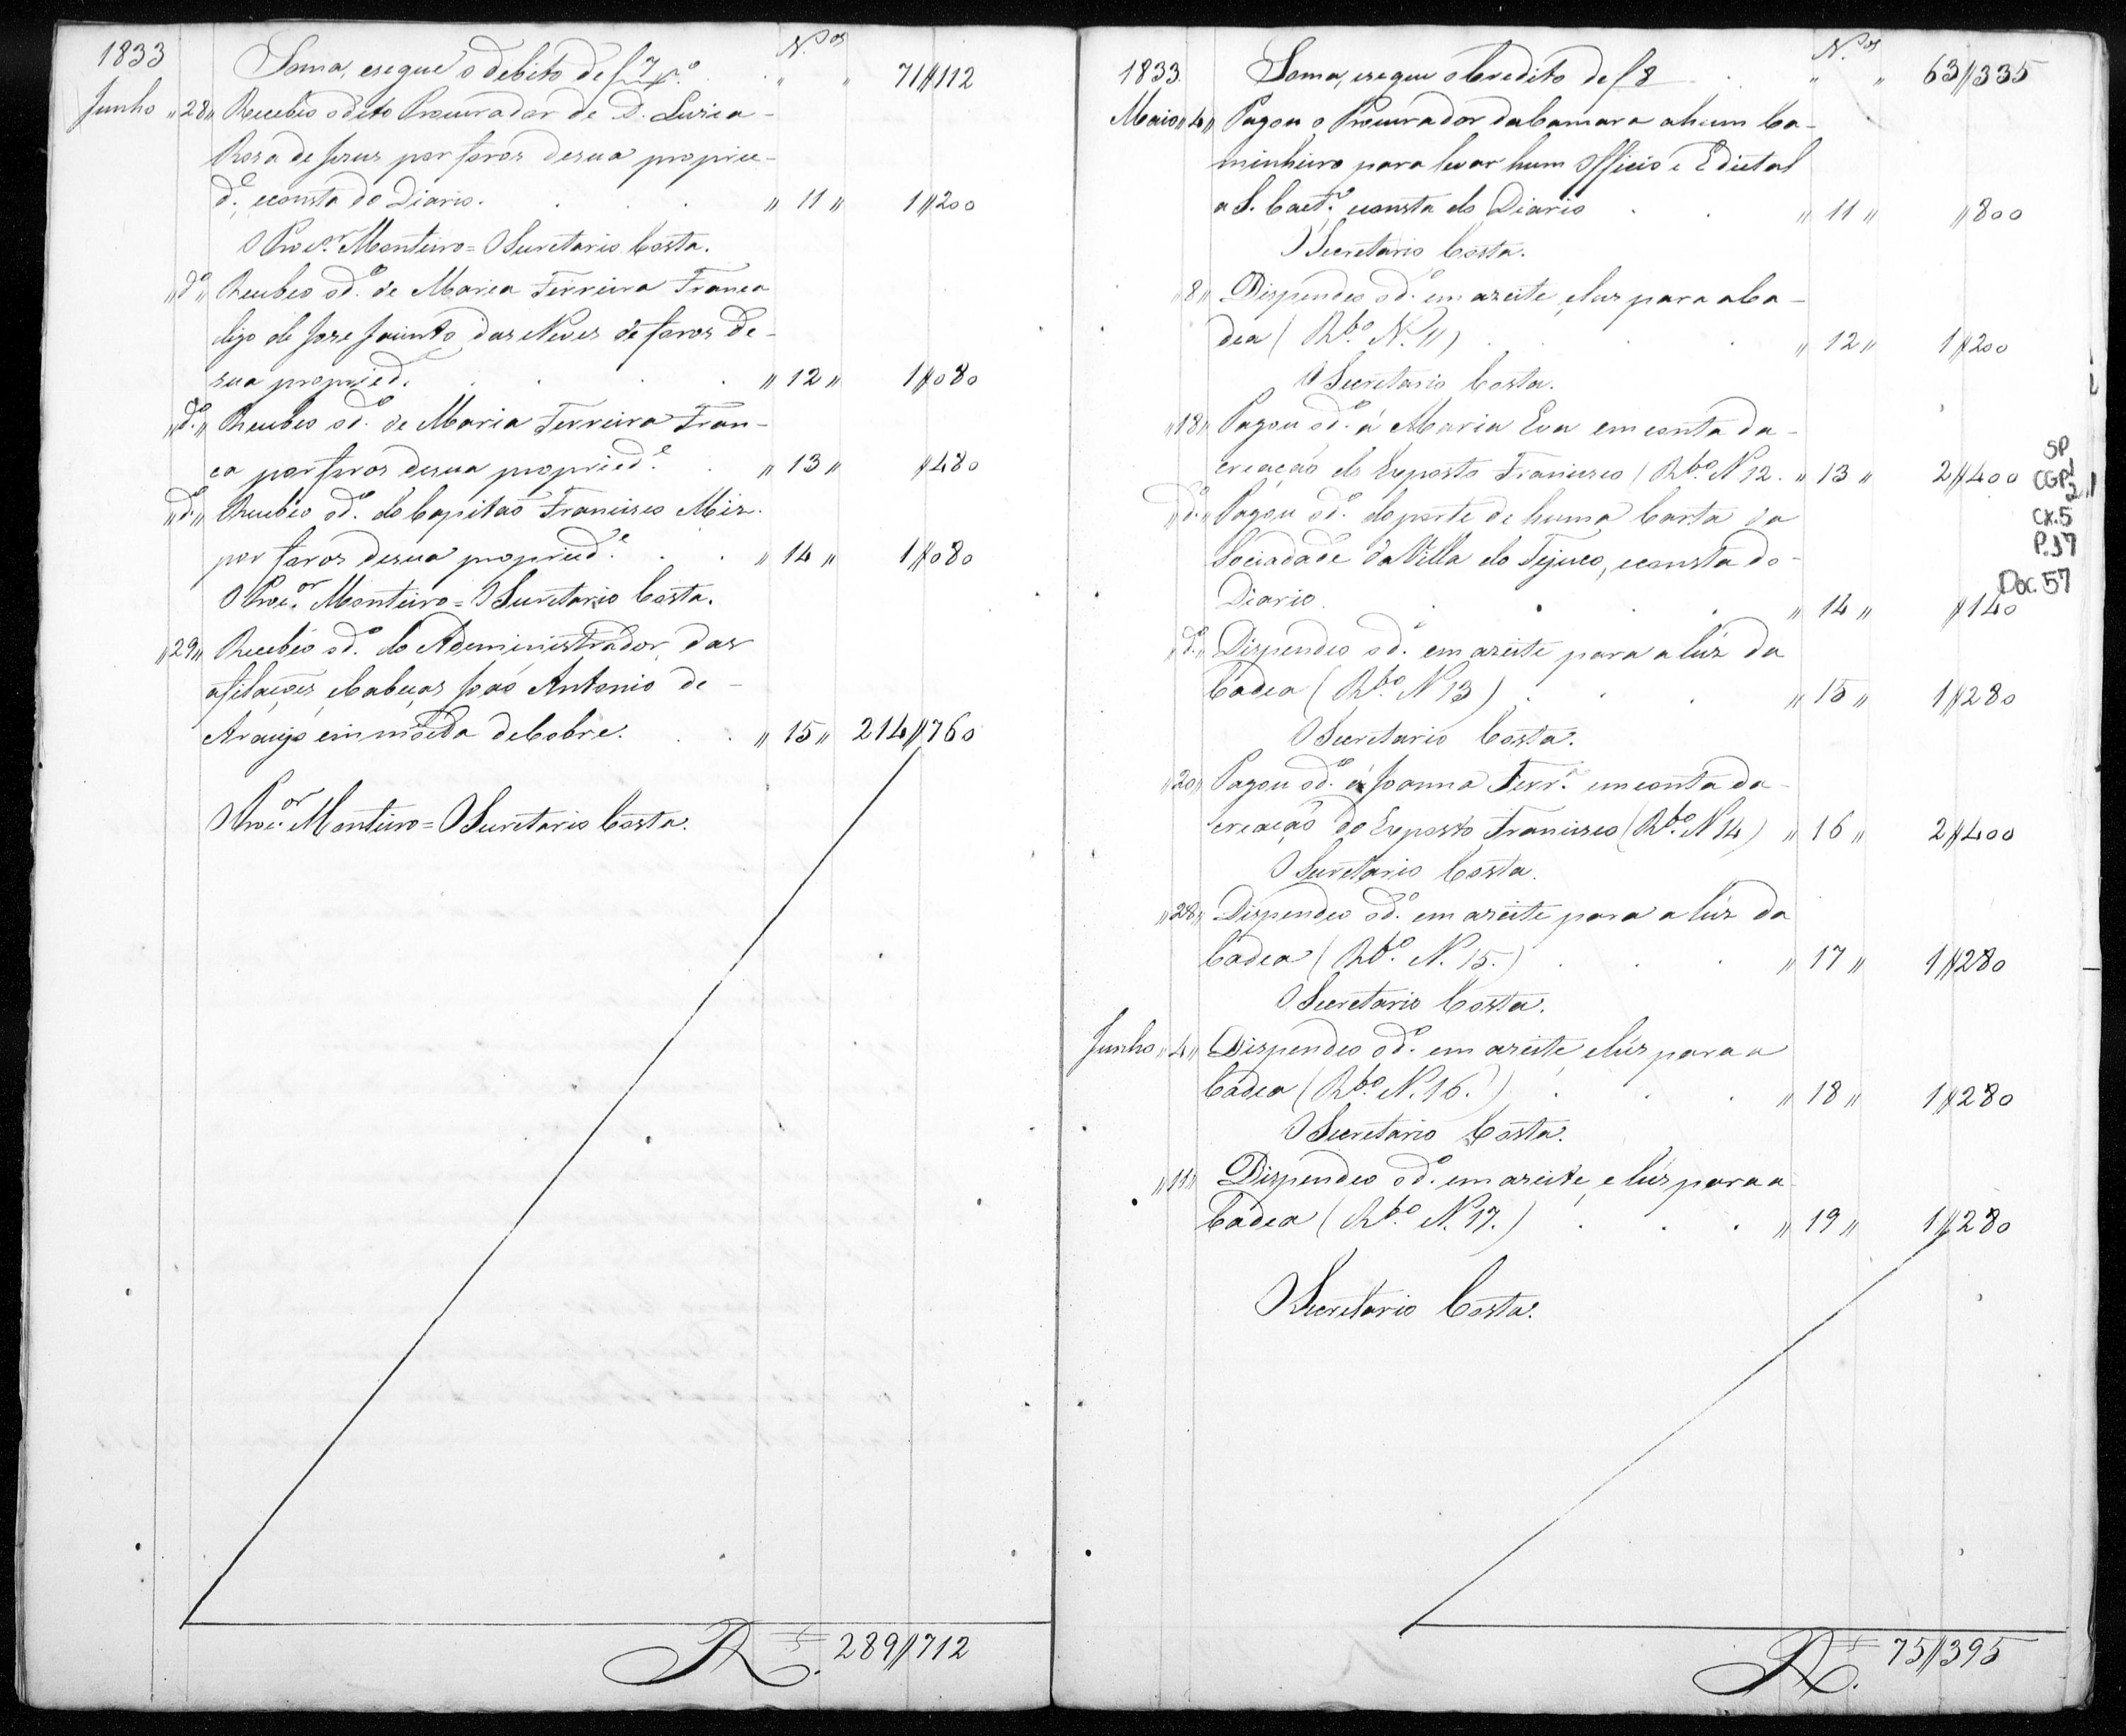 1833 Soma, esegue o debito de f 7 N.os " " 71//112
Junho "28" Recebeo odito Procurador de D. Luzia
Rosa de Jesus por foros desua proprie-
d.e, econsta do Diario. " 11 " 1//200
O Proc.or Monteiro = O Secretario Costa.
"d.o" Recebeo od.o de Maria Ferreira Franca
digo de Jose Jacinto das Neves de foros de
sua propried.e " 12 " 1//080
"d.o" Recebeo od.o de Maria Ferreira Fran-
ca por foros desua propried.e " 13 " //480
"d.o" Recebeo od.o do Capitaõ Francisco Miz.
por foros desua propried.e " 14 " 1//080
O Proc.or Monteiro = O Secretario Costa.
"29" Recebêo od.o do Administrador das
afilaçoẽs, eCabeças Joaõ Antonio de
Araujo em moeda deCobre. " 15 " 214//760
O Proc.or Monteiro = O Secretario Costa.
R.s 289//712
1833. Soma, esegue oCredito de f 8 N.os " " 63//335
Maio "4" Pagou o Procurador daCamara ahum Ca-
minheiro para levar hum Officio e Edictal
a S. Caet.o, econsta do Diario " 11 " //800
O Secretario Costa.
"8" Dispendeo od.o em azeite, eluz para aCa-
dea ( R.bo N. 11 ) " 12 " 1//200
O Secretario Costa.
"18" Pagou od.o á Maria Eva em conta da
creaçaõ do Exposto Francisco ( R.bo N 12. " 13 " 2//400
"d.o" Pagou od.o do porte de huma Carta da
Sociadade da Villa do Tejuco, econsta do
Diario " 14 " //140
"d.o" Dispendeo od.o em azeite para a lúz da
Cadea ( R.bo N 13 ) " 15 " 1//280
O Secretario Costa.
"20" Pagou od.o á Joanna Ferr.a em conta da
creaçaõ do Exposto Francisco ( R.bo N 14 ) " 16 " 2//400
O Secretario Costa.
"28" Dispendeo od.o em azeite para a lúz da
Cadea ( R.bo N. 15. ) " 17 " 1//280
O Secretario Costa.
Junho "4" Dispendeo od.o em azeite, elúz para a
Cadea ( R.bo N. 16. ) " 18 " 1//280
O Secretario Costa.
"11" Dispendeo od.o em azeite, e lúz para a
Cadea ( R.bo N. 17. ) " 19 " 1//280
O Secretario Costa.
R.s 75//395
SP
CGP
CX.5
P.17
Doc. 57